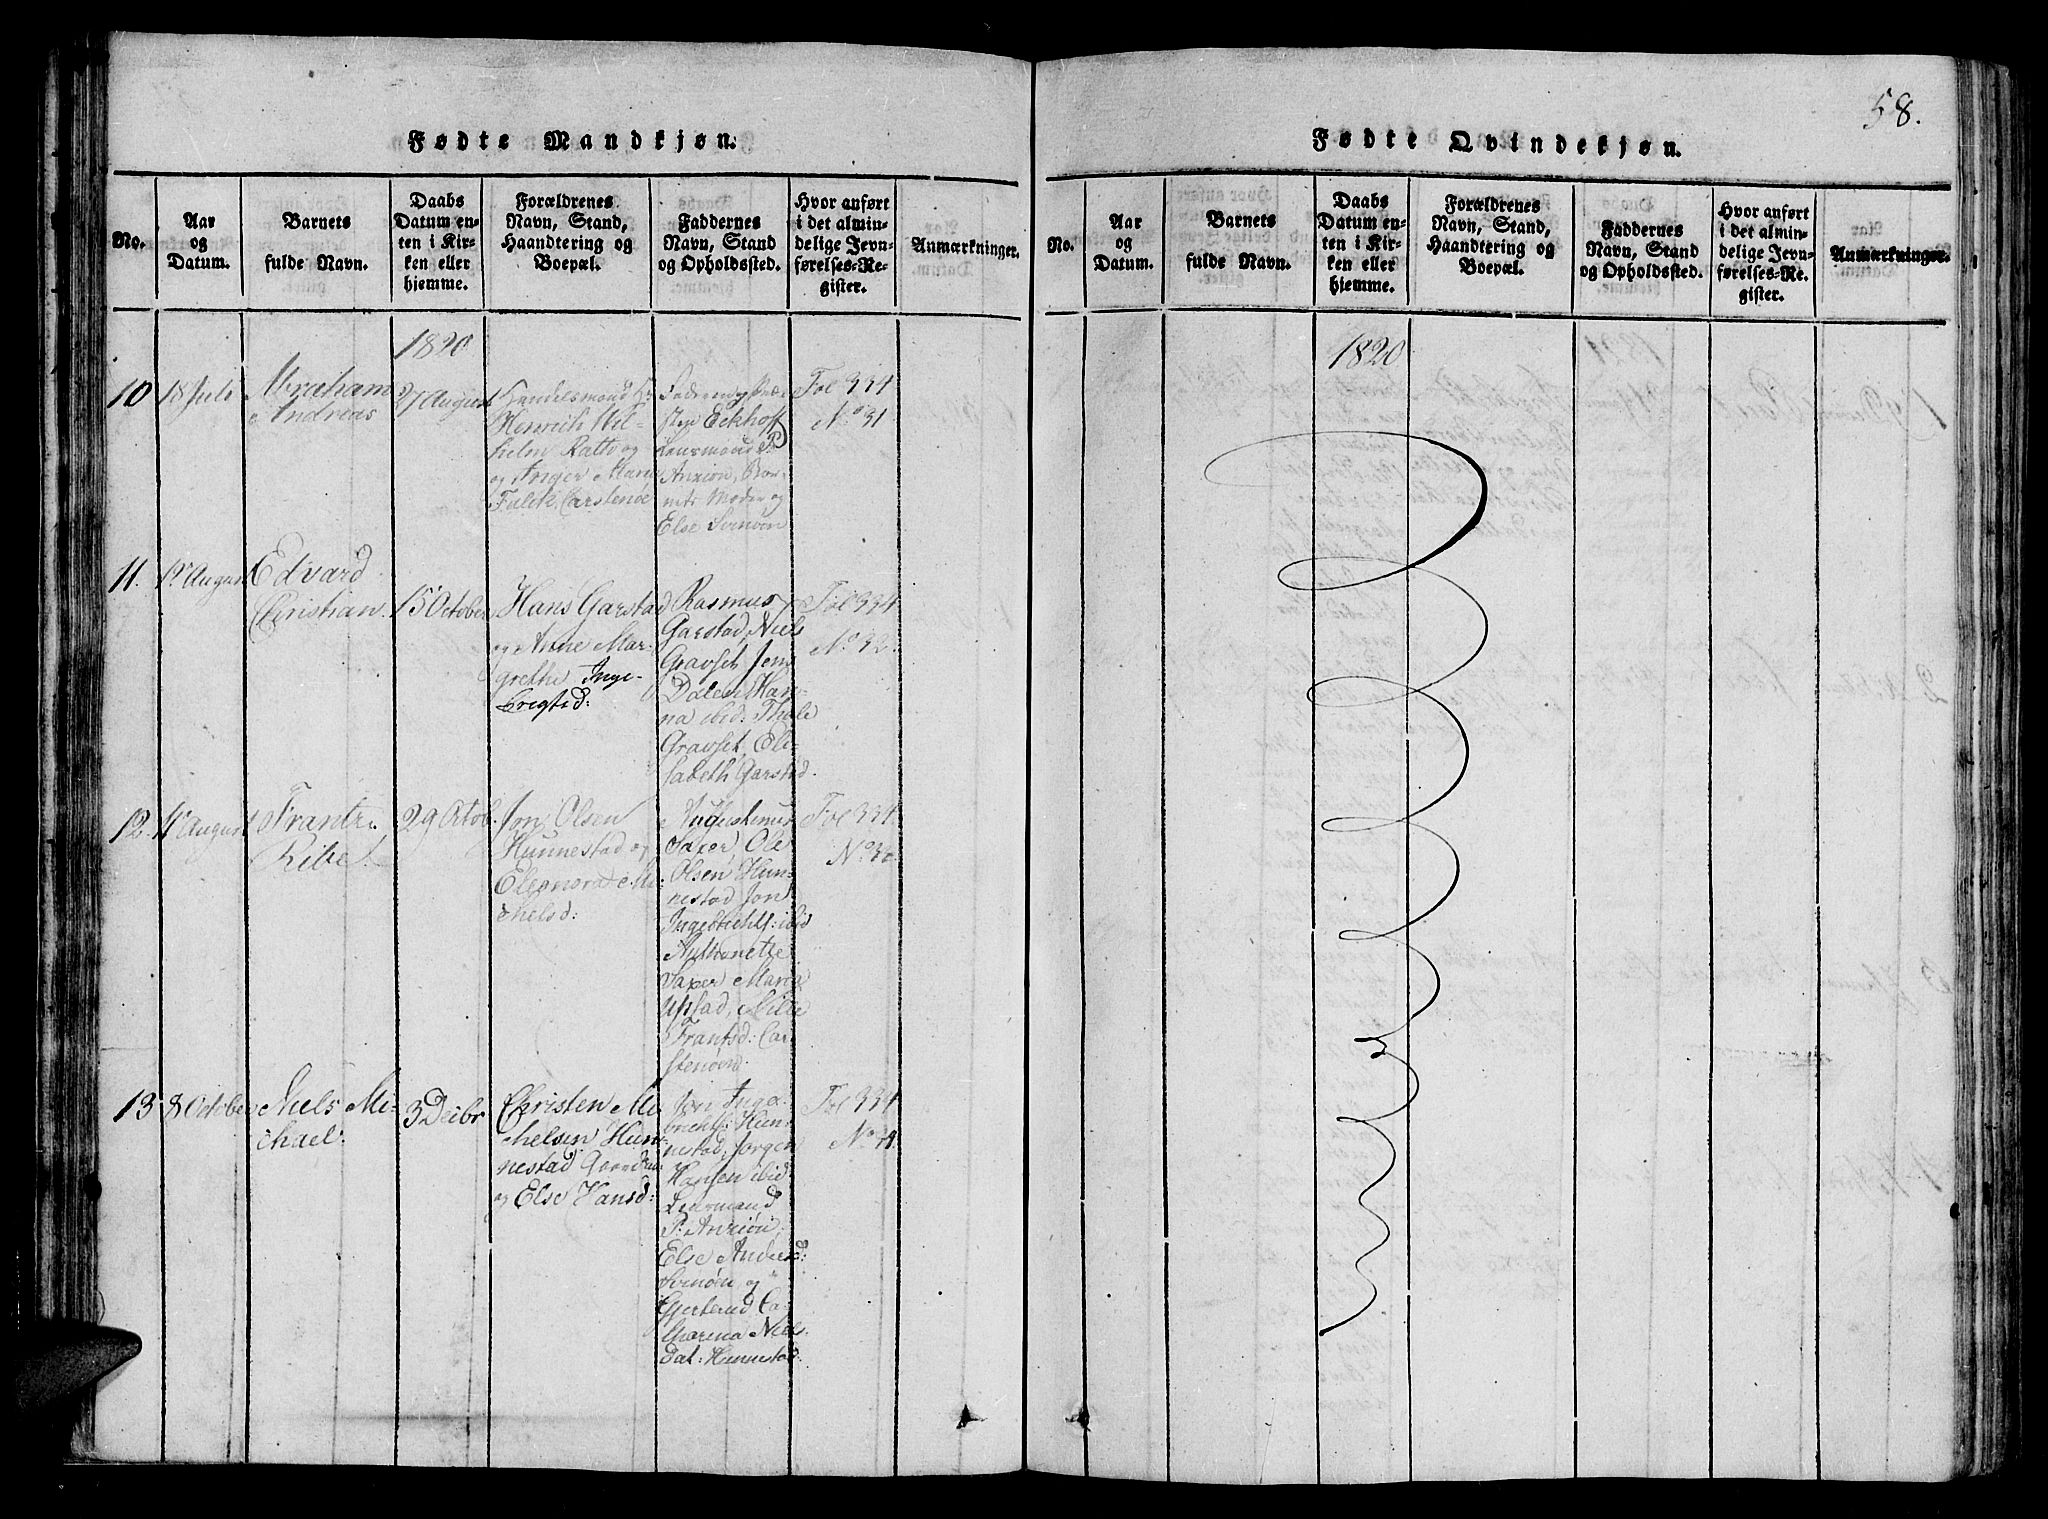 58.
Fødte Mandkjøn.
No.
Aar
og
Datum.
Barnets
fulde Navn.
Daabs
Datum en-
ten i Kir-
ken eller
hjemme.
Forældrenes
Navn, Stand,
Haandtering og
Boepæl.
Faddernes
Navn, Stand
og Opholdssted.
Hvor anført
i det almin-
delige Jevn-
førelses-Re-
gister.
Anmærkninger.
1820
10
18 Juli
Abraham
Andreas
27 August
Handelsmand Hr
Henrich Wil-
helm Ratto og
og Inger Marie
Falck, Carstenøe
Faderen, Præ-
sten Eckhoff
Lensmand P
Anxion, Bar-
nets Moder og
Else Svenøen
Fol 334
No 31
11.
12 August
Edvard
Christian.
15 October
Hans Garstad
og Anne Mar-
grethe Inge-
brigtsd:
Rasmus
Garstad, Niels
Gravset, Jens
Dalen, Han-
na ibid: Thale
Gravset, Eli-
sabeth Garstad.
Fol 334
No 32.
12.
August
Frantz
Ribe
29 Octob.
Jon Olsen
Hunnestad og
Eleonora Mi-
chelsd:
Augustinus
Saxer Ole
Olsen Hun-
nestad, Jon
ibid
Anthonette
Saxer Maren
Upsad,
Frantsd: Car-
stenøen.
Fol 334
No
13
8 October
Niels Mi-
chael.
3 Decibr
Christen Mi-
chelsen Hun-
nestad Gaardm
og Else Hansd:
Jon Inge-
brichts: Hun-
nestad, Jørgen
Hansen ibid
Lensmand
P: Anxion,
Else Andersd:
Svenøen og
Gjertrud Ca-
tharina Niels
Dat: Hunnestad.
Fol 334
No
Fødte Qvindekjøn.
No.
Aar
og
Datum.
Barnets
fulde Navn.
Daabs
Datum en-
ten i Kir-
ken eller
hjemme.
Forældrenes
Navn, Stand,
Haandtering og
Boepæl.
Faddernes
Navn, Stand
og Opholdssted.
Hvor anført
i det almin-
delige Jevn-
førelses-Re-
gister.
Anmærkninger.
1820